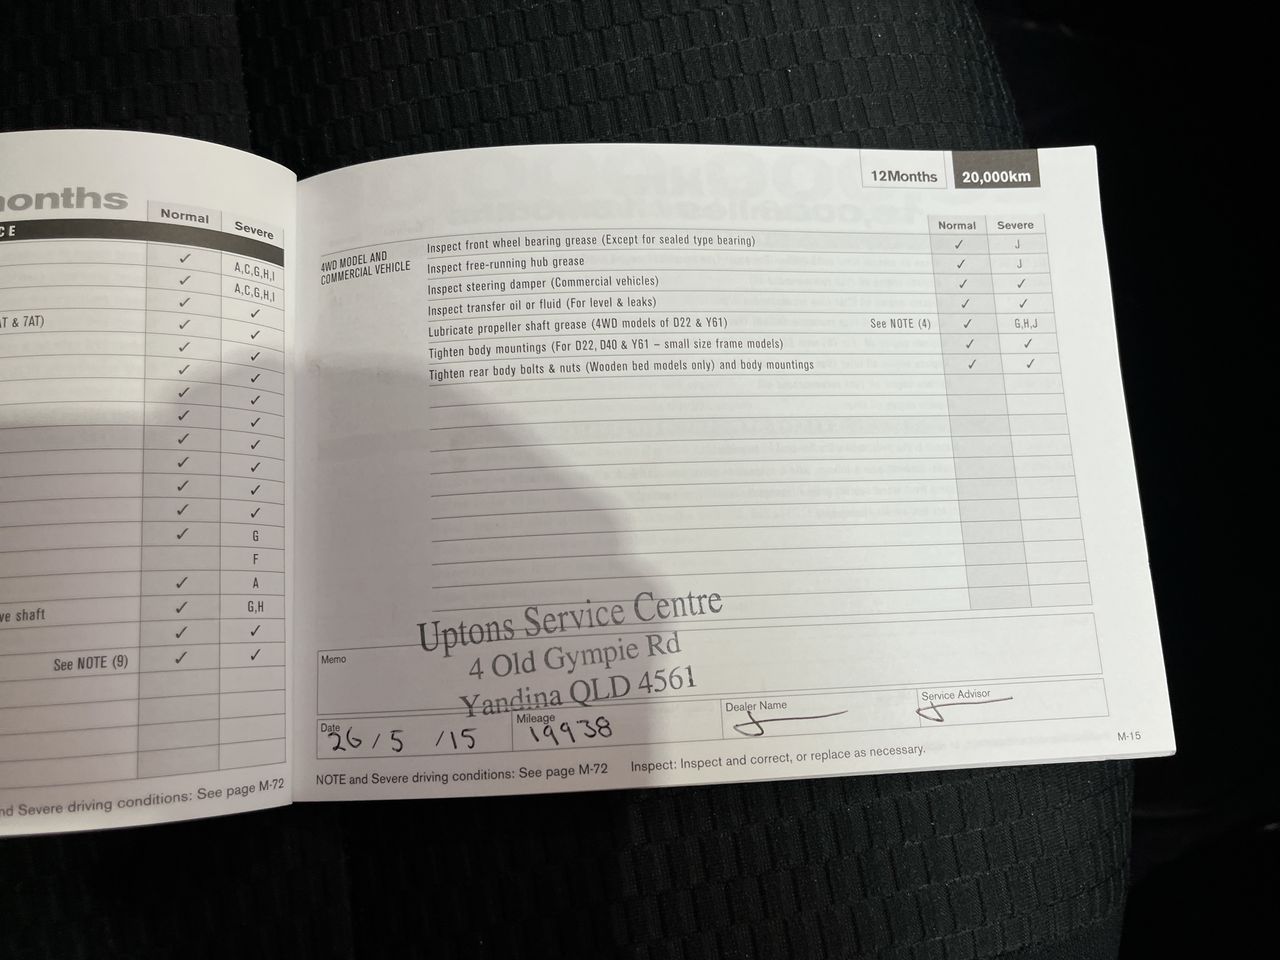 onths
Normal
Severe
CE
✓ A,C,G,H,I
✓ A,C,G,H,I
✓ ✓
T & 7AT) ✓ ✓
✓ ✓
✓ ✓
✓ ✓
✓ ✓
✓ ✓
✓ ✓
✓ ✓
✓ ✓
✓ G
F
✓ A
ve shaft ✓ G,H
✓ ✓
See NOTE (9) ✓ ✓
nd Severe driving conditions: See page M-72
12Months 20,000km
Normal Severe
4WD MODEL AND
COMMERCIAL VEHICLE
Inspect front wheel bearing grease (Except for sealed type bearing) ✓ J
Inspect free-running hub grease ✓ J
Inspect steering damper (Commercial vehicles) ✓ ✓
Inspect transfer oil or fluid (For level & leaks) ✓ ✓
Lubricate propeller shaft grease (4WD models of D22 & Y61) See NOTE (4) ✓ G,H,J
Tighten body mountings (For D22, D40 & Y61 – small size frame models) ✓ ✓
Tighten rear body bolts & nuts (Wooden bed models only) and body mountings ✓ ✓
Uptons Service Centre
4 Old Gympie Rd
Yandina QLD 4561
Memo
Date 26/5/15
Mileage 19938
Dealer Name
Service Advisor
NOTE and Severe driving conditions: See page M-72 Inspect: Inspect and correct, or replace as necessary.
M-15